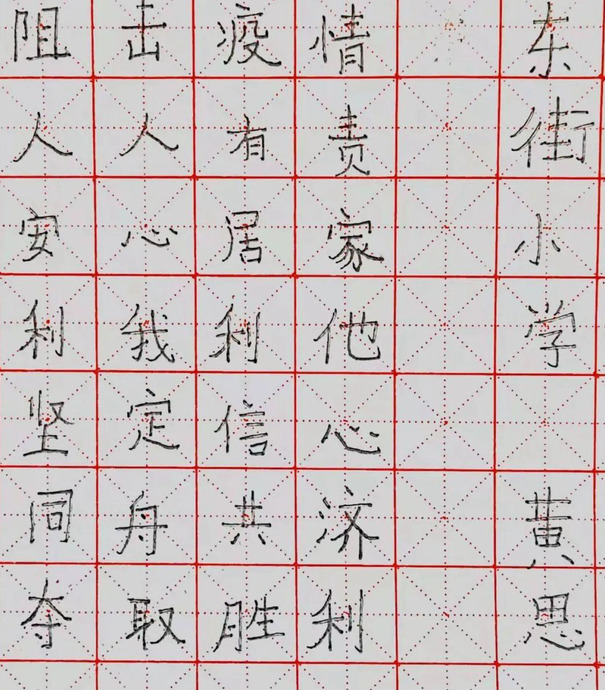 阻击疫情 东
人人有责 街
安心居家 小
利我利他 学
坚定信心
同舟共济 黄
夺取胜利 思